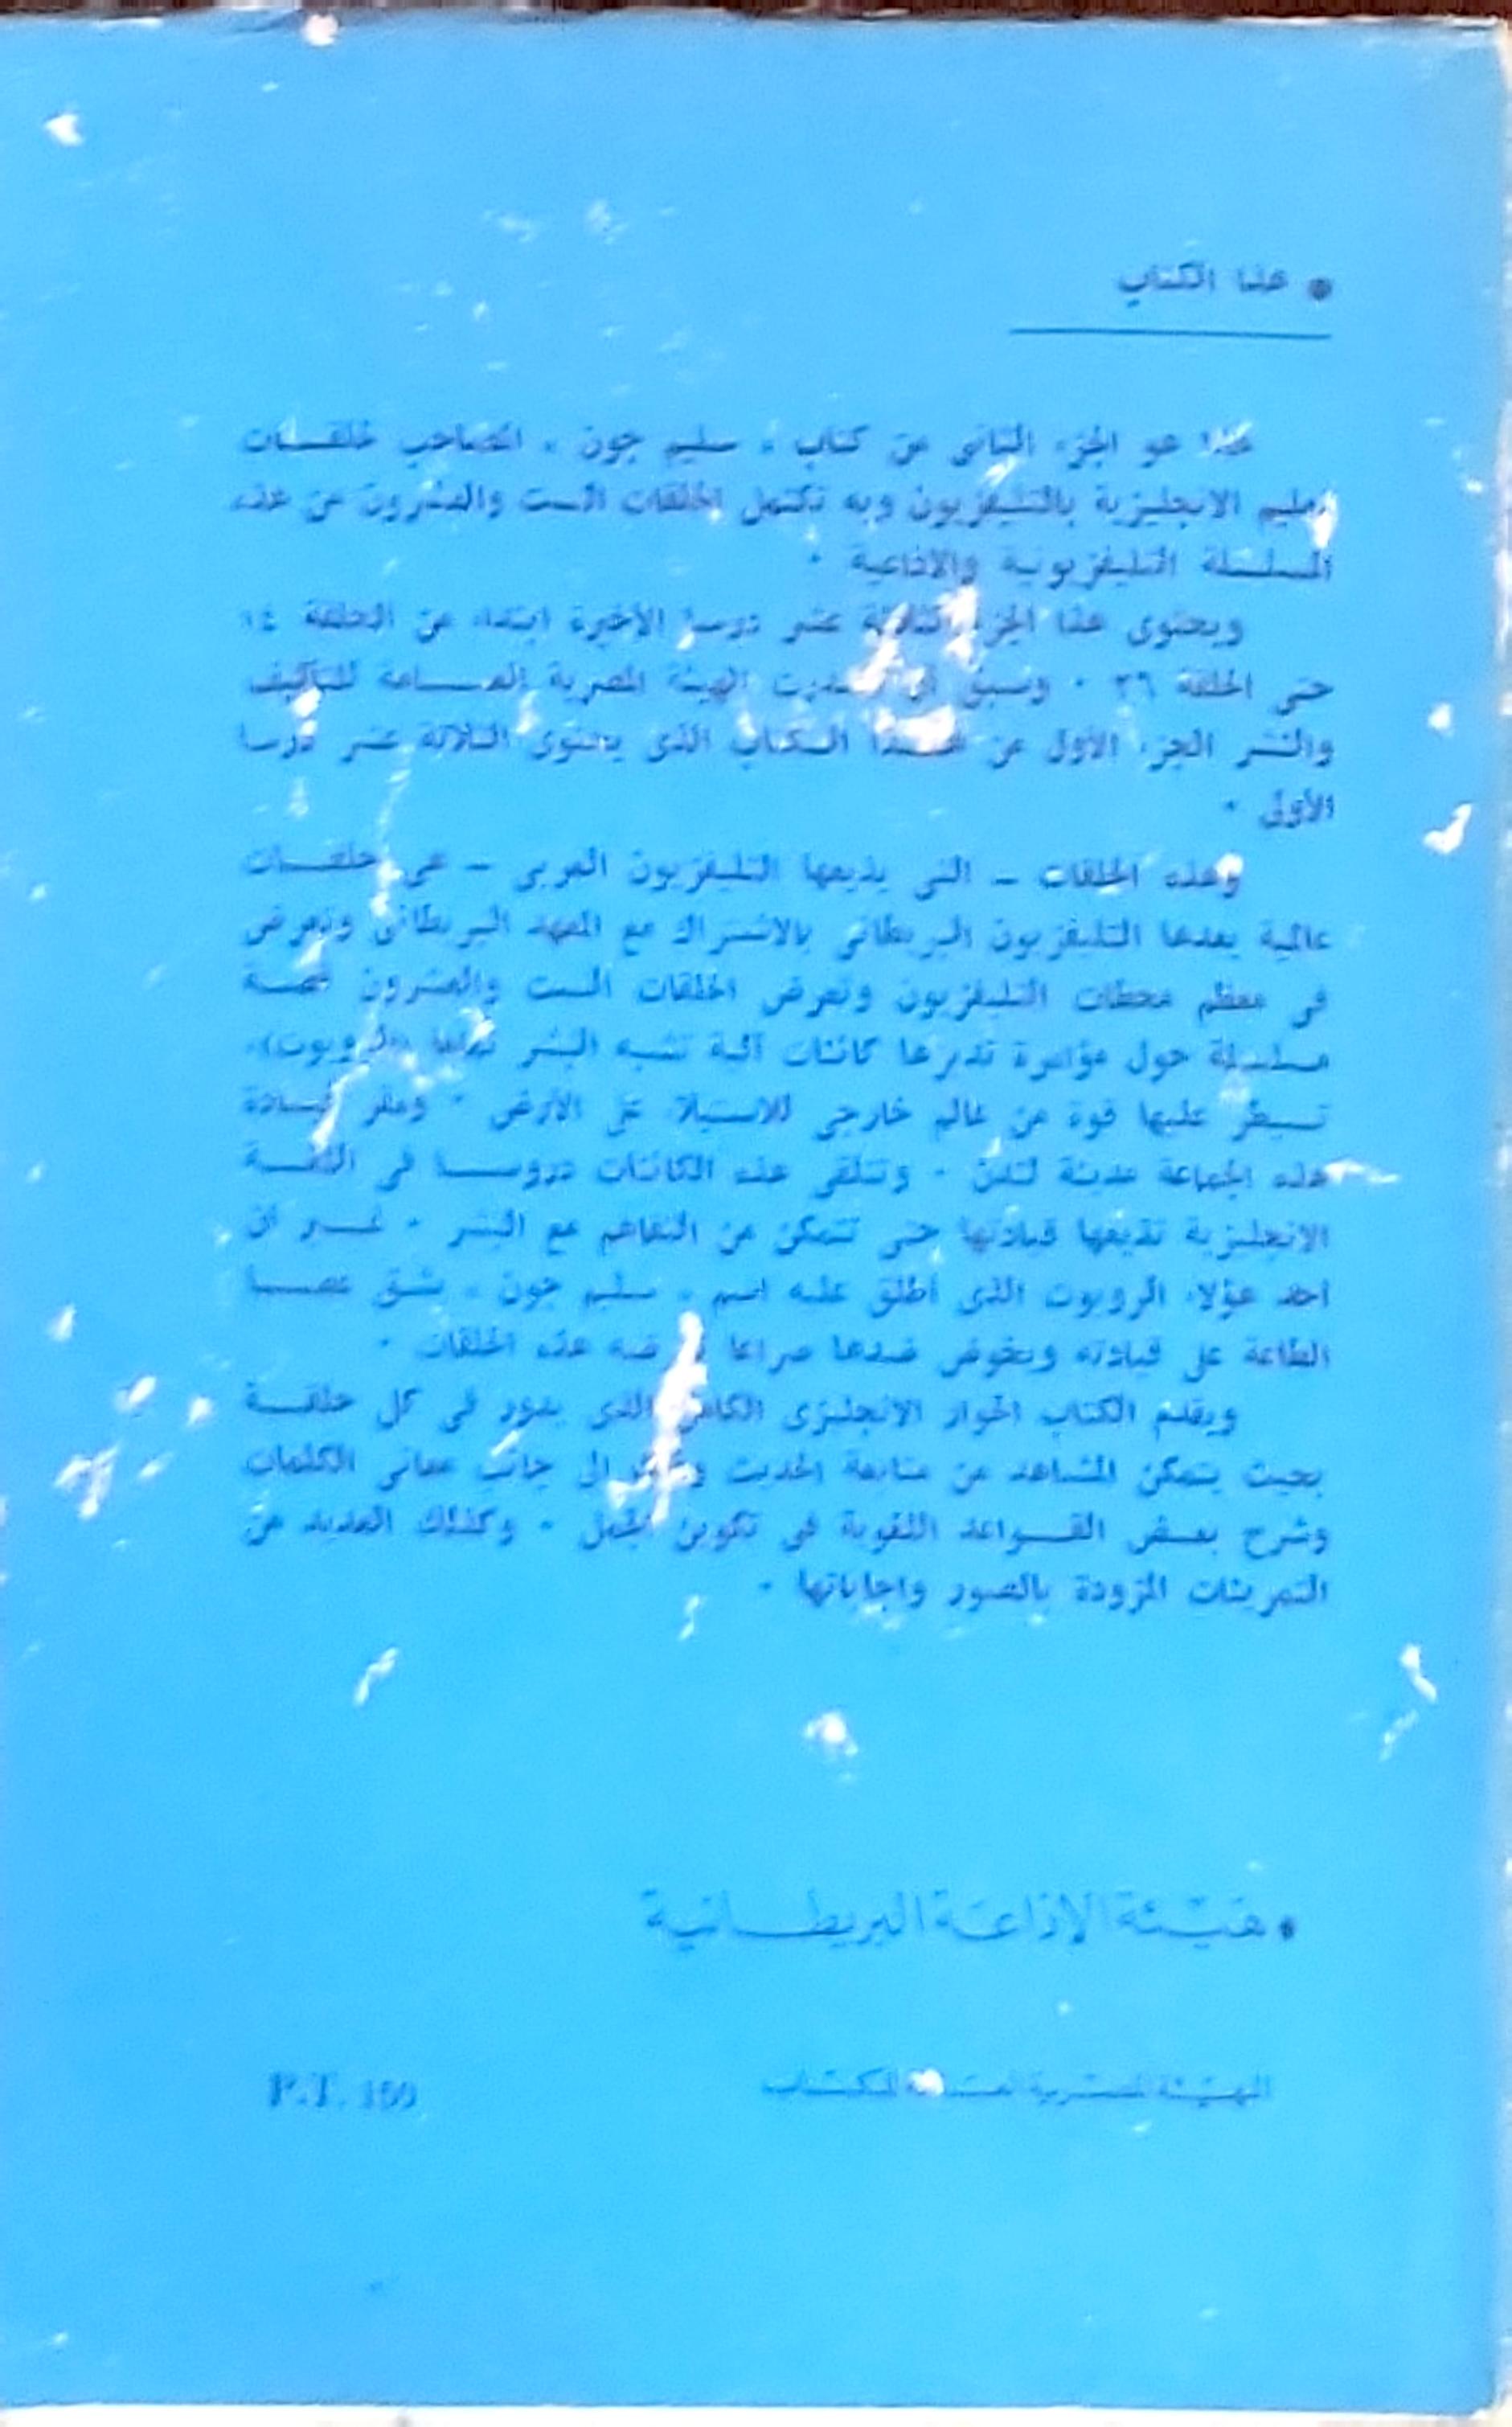 ● هذا الكتاب
هذا هو الجزء الثانى من كتاب « سليم جون » المصاحب لحلقــات
تعليم الانجليزية بالتليفزيون وبه تكتمل الحلقات الست والعشرون من هذه
المسلسلة التليفزيونية والاذاعية ٠
ويحتوى هذا الجزء الثلاثة عشر درسا الأخيرة ابتداء من الحلقة ١٤
حتى الحلقة ٢٦ ٠ وسبق أن أصدرت الهيئة المصرية العــامة للتأليف
والنشر الجزء الأول من هــذا الكتاب الذى يحتوى الثلاثة عشر درسا
الأولى ٠
وهذه الحلقات – التى يذيعها التليفزيون العربى – هى حلقــات
عالمية يعدها التليفزيون البريطانى بالاشتراك مع المعهد البريطانى وتعرض
فى معظم محطات التليفزيون وتعرض الحلقات الست والعشرون قصــة
مسلسلة حول مؤامرة تدبرها كائنات آلية تشبه البشر (الروبوت)،
تسيطر عليها قوة من عالم خارجى للاستيلاء على الأرض ٠ ومقر قيــادة
هذه الجماعة مدينة لندن ٠ وتتلقى هذه الكائنات دروســا فى اللغــة
الانجليزية تذيعها قيادتها حتى تتمكن من التفاهم مع البشر ٠ غــير أن
أحد هؤلاء الروبوت الذى أطلق عليه اسم « سليم جون » يشق عصــا
الطاعة على قيادته ويخوض ضدها صراعا هذه الحلقات ٠
ويقدم الكتاب الحوار الانجليزى الكامل الذى يدور فى كل حلقــة
بحيث يتمكن المشاهد من متابعة الحديث الى جانب معانى الكلمات
وشرح بعــض القــواعد اللغوية فى تكوين الجمل ٠ وكذلك العديد من
التمرينات المزودة بالصور واجاباتها ٠
● هيئة الإذاعة البريطــانية
الهيئة المصرية العامة للكتاب
P.T. 150